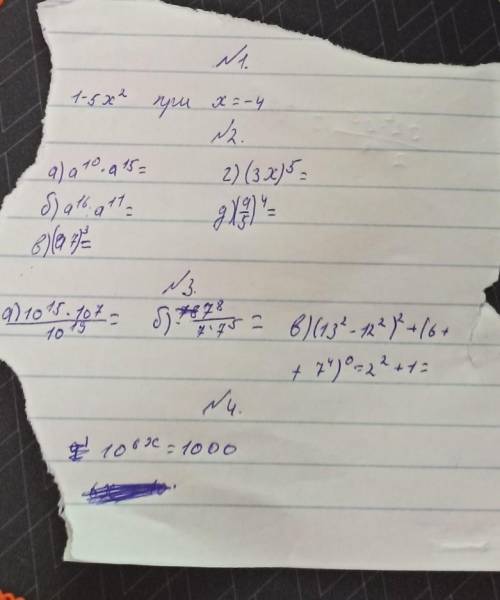 №1.
1-5x² при x=-4
№2.
а) a¹⁰·a¹⁵= г) (3x)⁵=
б) a¹⁶·a¹¹= д) (a/5)⁴=
в) (a7)³=
№3.
а) 10¹⁵·10⁷/10¹⁹= б) 7⁸/7·7⁵= в) (13²-12²)²+(6+
+7⁴)⁰=2²+1=
№4.
10⁶x=1000